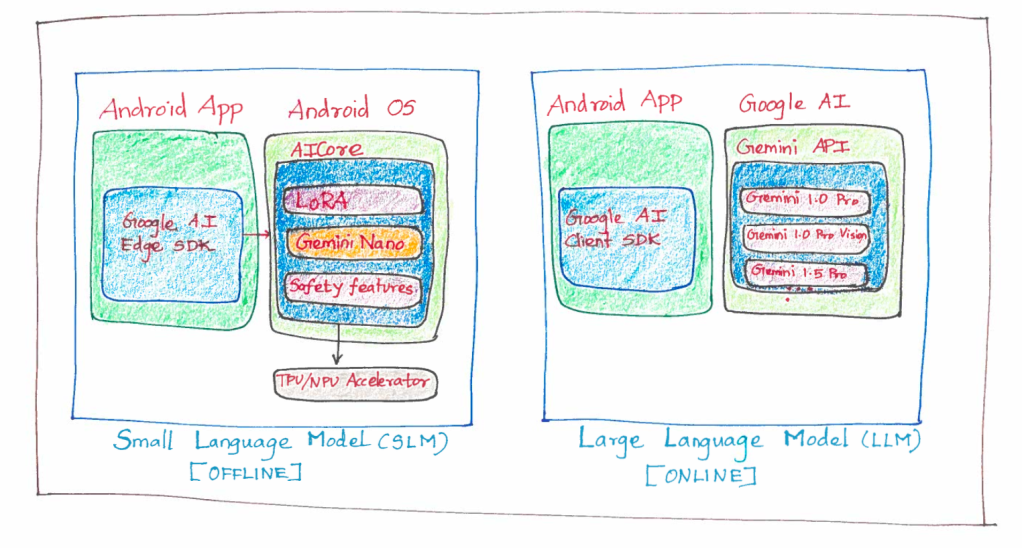 Android App
Android OS
AICore
Google AI
Edge SDK
LoRA
Gemini Nano
Safety features
TPU/NPU Accelerator
Small Language Model (SLM)
[OFFLINE]
Android App
Google AI
Gemini API
Google AI
Client SDK
Gemini 1.0 Pro
Gemini 1.0 Pro Vision
Gemini 1.5 Pro
Large Language Model (LLM)
[ONLINE]